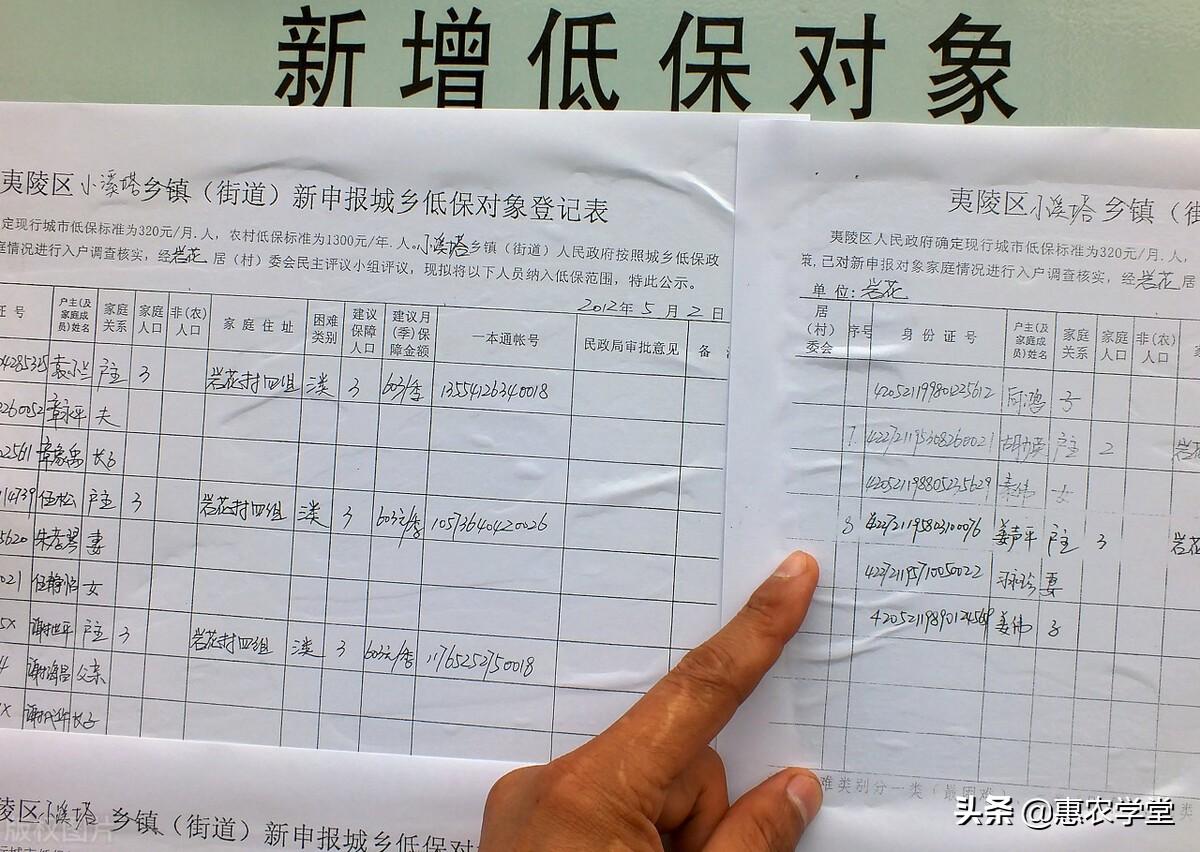 新增低保对象
夷陵区小溪塔乡镇（街道）新申报城乡低保对象登记表
定现行城市低保标准为320元/月.人，农村低保标准为1300元/年.人。小溪塔乡镇（街道）人民政府按照城乡低保政
庭情况进行入户调查核实，经岩花居（村）委会民主评议小组评议，现拟将以下人员纳入低保范围，特此公示。
2012年5月2日
证号 户主(及家庭成员)姓名 家庭关系 家庭人口 非(农)人口 家庭住址 困难类别 建议保障人口 建议月(季)保障金额 一本通帐号 民政局审批意见 备
户主 3 岩花村四组 3 603/季 13554126340018
夫
长子
伍松 户主 3 岩花村四组 3 603元/季 10573640420026
5620 妻
021 女
5X 户主 3 岩花村四组 3 603元/季 11765252750018
父亲
长子
陵区小溪塔乡镇（街道）新申报城乡低保对
夷陵区小溪塔乡镇（街
夷陵区人民政府确定现行城市低保标准为320元/月.人，
策，已对新申报对象家庭情况进行入户调查核实，经岩花居
单位：岩花
居（村）委会 序号 身份证号 户主(及家庭成员)姓名 家庭关系 家庭人口 非(农)人口
420521199801225612 子
7. 422721195308260021 户主 2 岩花
女
8 422721195803100076 姜声平 户主 3 岩花
422721195710050022 妻
姜伟 子
难类别分一类（最困难
头条 @惠农学堂
版权图片